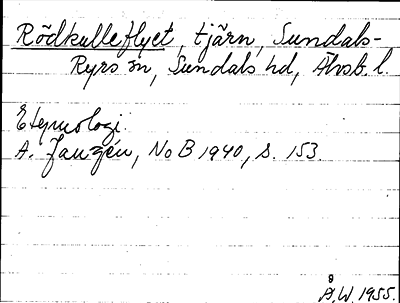 Rödkulleflyet, tjärn, Sundals-
Ryrs sn, Sundals hd, Älvsb. l.
Etymologi:
A. Janzén, NoB 1940, s. 153.
Å.W. 1955.